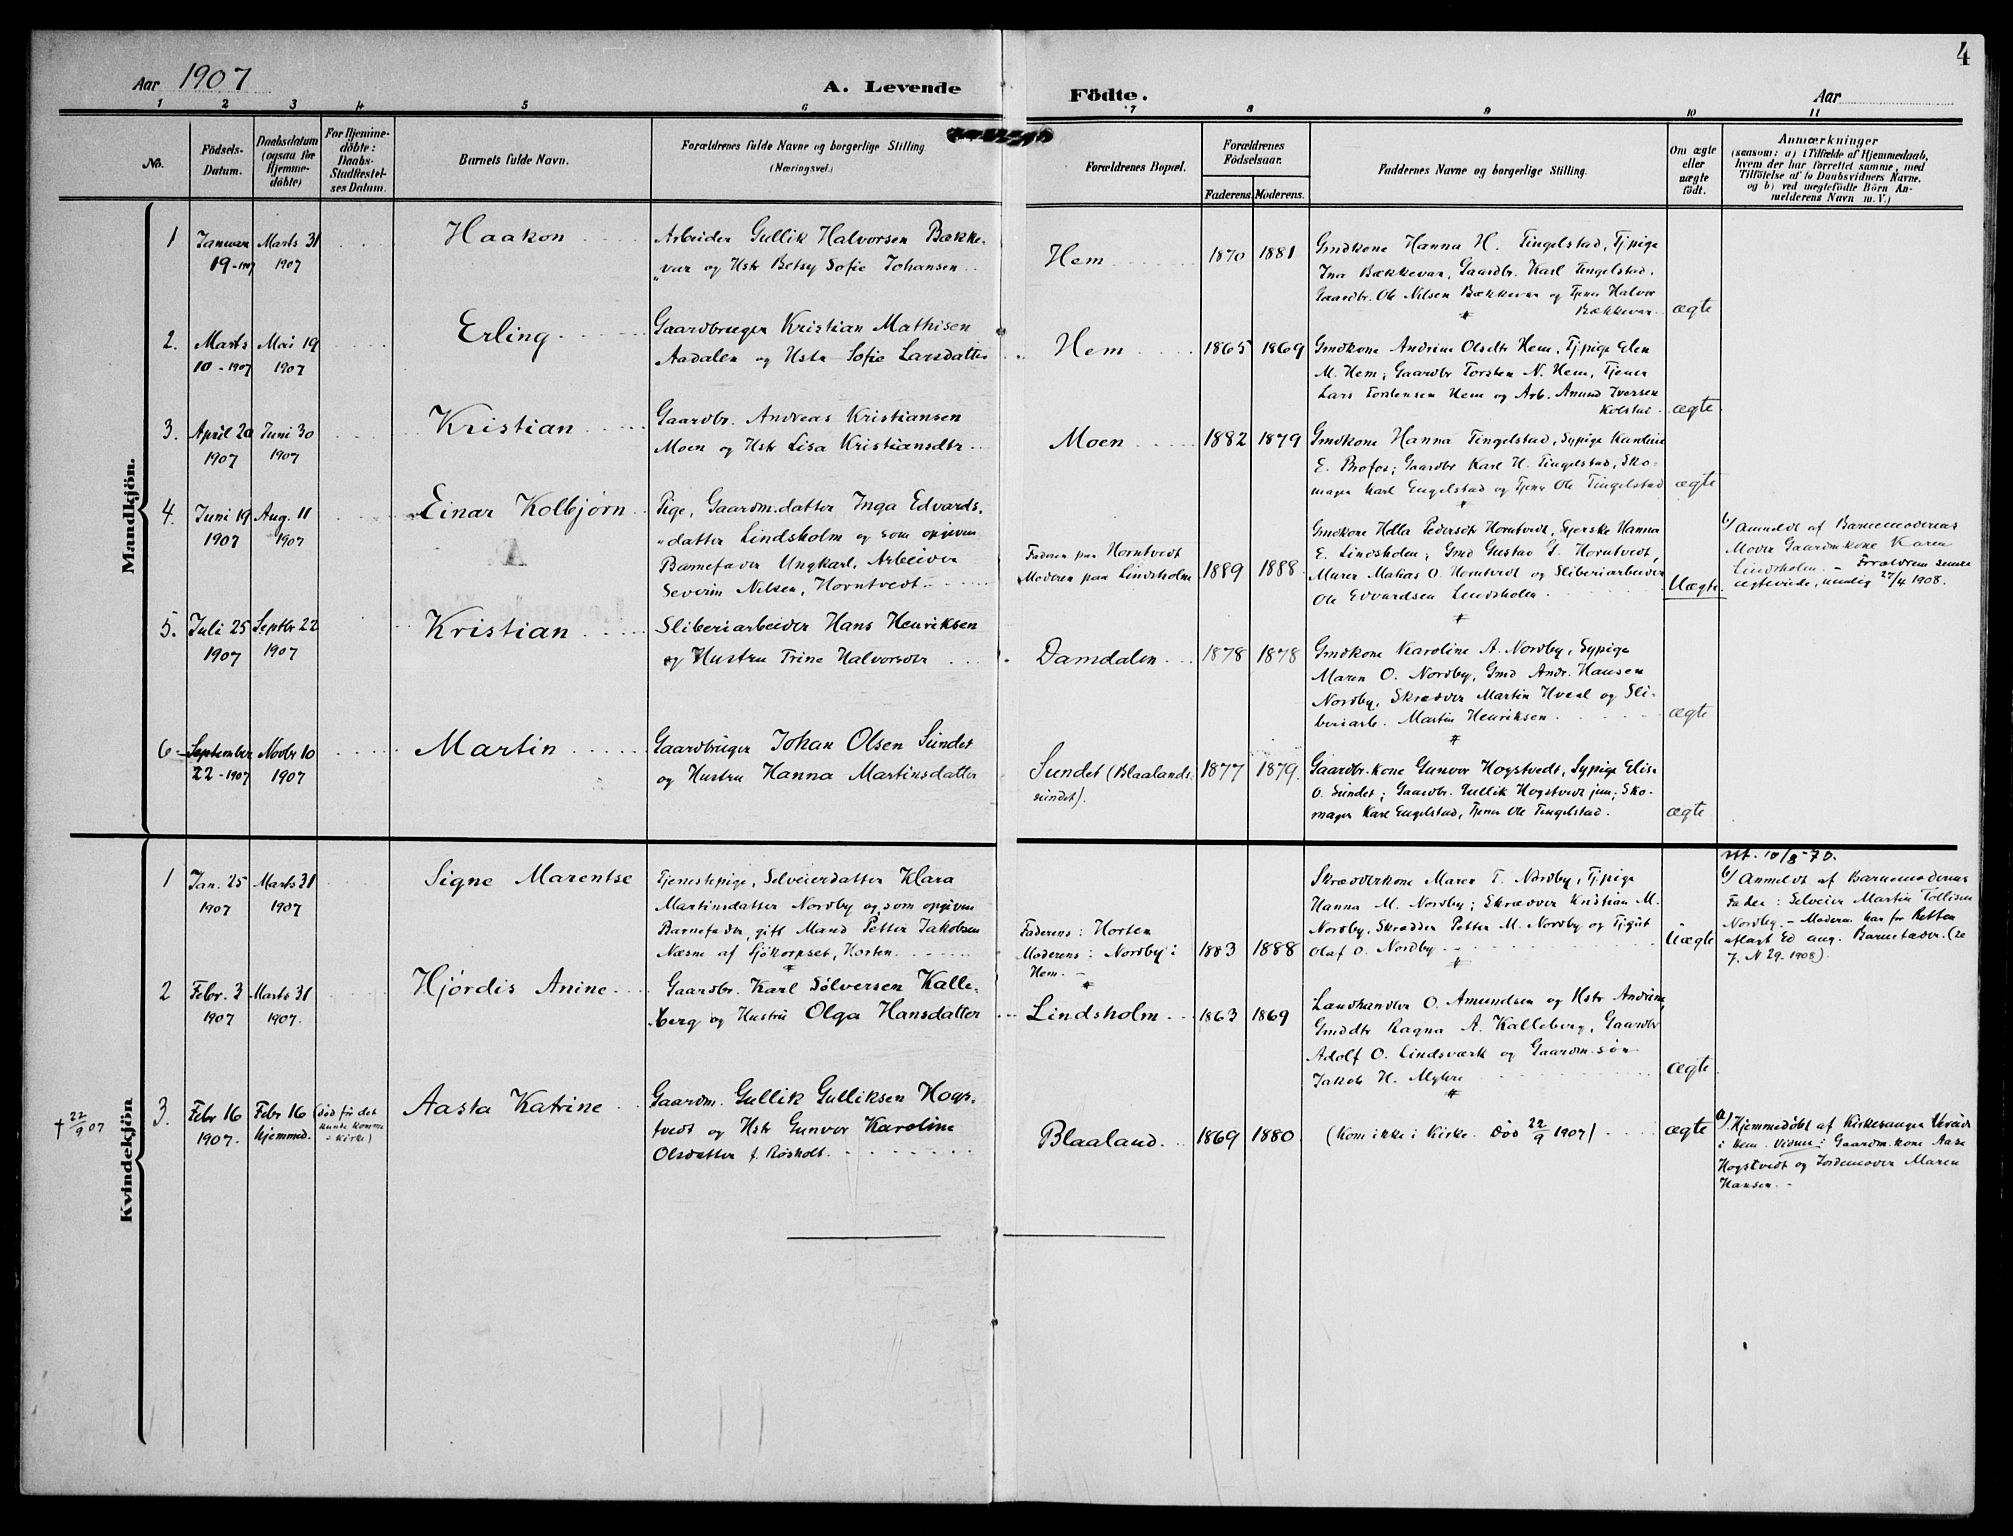 4
Aar 1907
A. Levende Födte.
Aar
1 2 3 4 5 6 7 8 9 10 11
No.
Födsels-
Datum.
Daabsdatum
(ogsaa for
Hjemme-
döbte)
For Hjemme-
döbte:
Daabs-
Stadfestel-
ses Datum.
Barnets fulde Navn.
Forældrenes fulde Navne og borgerlige Stilling.
(Næringsvei.)
Forældrenes Bopæl.
Forældrenes
Födselsaar.
Faderens.
Moderens.
Faddernes Navne og borgerlige Stilling.
Om ægte
eller
uægte
födt.
Anmærkninger
(saasom: a) i Tilfælde af Hjemmedaab,
hvem der har forrettet samme, med
Tilföielse af to Daabsvidners Navne.
og b) ved uægtefödte Börn An-
melderens Navn m. V.)
Mandkjön.
1
Januar
19-1907
Marts 31
1907
Haakon
Arbeider Gullik Halvorsen Bække-
var og Hstr Betsy Sofie Johansen
Hem
1870
1881
Gmdkone Hanna H. Tingelstad, Tjpige
Ina Bækkevar, Gaardbr. Karl Tingelstad.
Gaardbr. Ole Nilsen Bækkevar og Tjener Halvor
Bækkevar.
ægte
2.
Marts
10-1907
Mai 19
1907
Erling
Gaardbruger Kristian Mathisen
Aadalen og Hstr Sofie Larsdatter
Hem
1865
1869
Gmdkone Andrine Olsdtr Hem, Tjpige Elen
M. Hem; Gaardbr Torsten N. Hem, Tjener
Lars Torstensen Hem og Arb. Amund Iversen
Kolstad.
ægte
3.
April 20
1907
Juni 30
1907
Kristian
Gaardbr. Andreas Kristiansen
Moen og Hstr Lisa Kristiansdtr
Moen
1882
1879
Gmdkone Hanna Tingelstad, Sypige
E. Profos; Gaardbr Karl H. Tingelstad, Sko-
mager Karl Engelstad og Tjener Ole Tingelstad
ægte
4.
Juni 19
1907
Aug. 11
1907
Einar Kolbjørn
Pige, Gaardm.datter Inga Edvards-
datter Lindsholm og som opgiven
Barnefader Ungkarl, Arbeider
Severin Nilsen, Horntvedt.
Faderen paa Horntvedt
Moderen paa Lindsholm
1889
1888
Gmdkone Helle Pedersdt Horntvedt, Syerske Hanna
E. Lindsholm; Gmd Gustav G. Horntvedt,
Murer Matias O. Horntvedt og Sliberiarbeider
Ole Edvardsen Lindsholm.
Uægte
b/ Anmeldt af Barnemoderens
Moder Gaardm.kone Karen
Lindsholm. - Forældrene senere
ægteviede, nemlig 27/4 1908.
5.
Juli 25
1907
Septbr 22
1907
Kristian
Sliberiarbeider Hans Henriksen
og Hustru Trine Halvorsdtr
Damdalen
1878
1878
Gmdkone Karoline A. Nordby, Sypige
Maren O. Nordby, Gmd Andr. Hansen
Nordby, Skrædder Martin Hvaal og Sli-
beriarb. Martin Henriksen.
ægte
6
September
22-1907
Novbr 10
1907
Martin
Gaardbruger Johan Olsen Sundet
og Hustru Hanna Martinsdatter
Sundet (Blaalands-
sundet).
1877
1879.
Gaardbr.kone Gunvor Hogstvedt, Sypige Elise
O. Sundet; Gaardbr. Gullik Hogstvedt jun; Sko-
mager Karl Engelstad, Tjener Ole Tingelstad.
ægte
Kvindekjön
1
Jan. 25
1907
Marts 31
1907
Signe Marentse
Tjenestepige, Selveierdatter Klara
Martinsdatter Nordby og som opgiven
Barnefader, gift Mand Petter Jakobsen
Næsne af Sjökorpset, Horten.
Faderens: Horten
Moderens: Nordby i
Hem.
1883
1888
Skrædderkone Maren T. Nordby, Tjpige
Hanna M. Nordby; Skrædder Kristian M.
Nordby, Skrædder Petter M. Nordby og Tjgut
Olaf O. Nordby
Uægte
att. 10/8-70.
b/ Anmeldt af Barnemoderens
Fader: Selveier Martin Tollisen
Nordby. - Moderen har for Retten
aflagt Ed ang. Barnefader. (se
J. N 29. 1908).
2
Febr. 3
1907
Marts 31
1907.
Hjørdis Anine
Gaardbr. Karl Sölversen Kalle-
berg og Hustru Olga Hansdatter
Lindsholm
1863
1869
Landhandler O. Amundsen og Hstr Andrine,
Gmddtr Ragna A. Kalleberg, Gaardbr
Adolf O. Lindsværk og Gaardm.sön
Jakob H. Myhre
ægte
† 22/9 07
3.
Febr 16
1907.
Febr 16
hjemmed.
(död för det
kunde komme
i Kirke)
Aasta Katrine
Gaardm. Gullik Gulliksen Hogs-
tvedt og Hstr Gunvor Karoline
Olsdatter f. Røsholt.
Blaaland.
1869
1880
(Kom ikke i Kirke. Död 22/9 1907)
ægte
a/ Hjemmedöbt af Kirkesanger
i Hem. Vidner: Gaardm.kone Aase
Hogstvedt og Jordemoder Maren
Hansen.